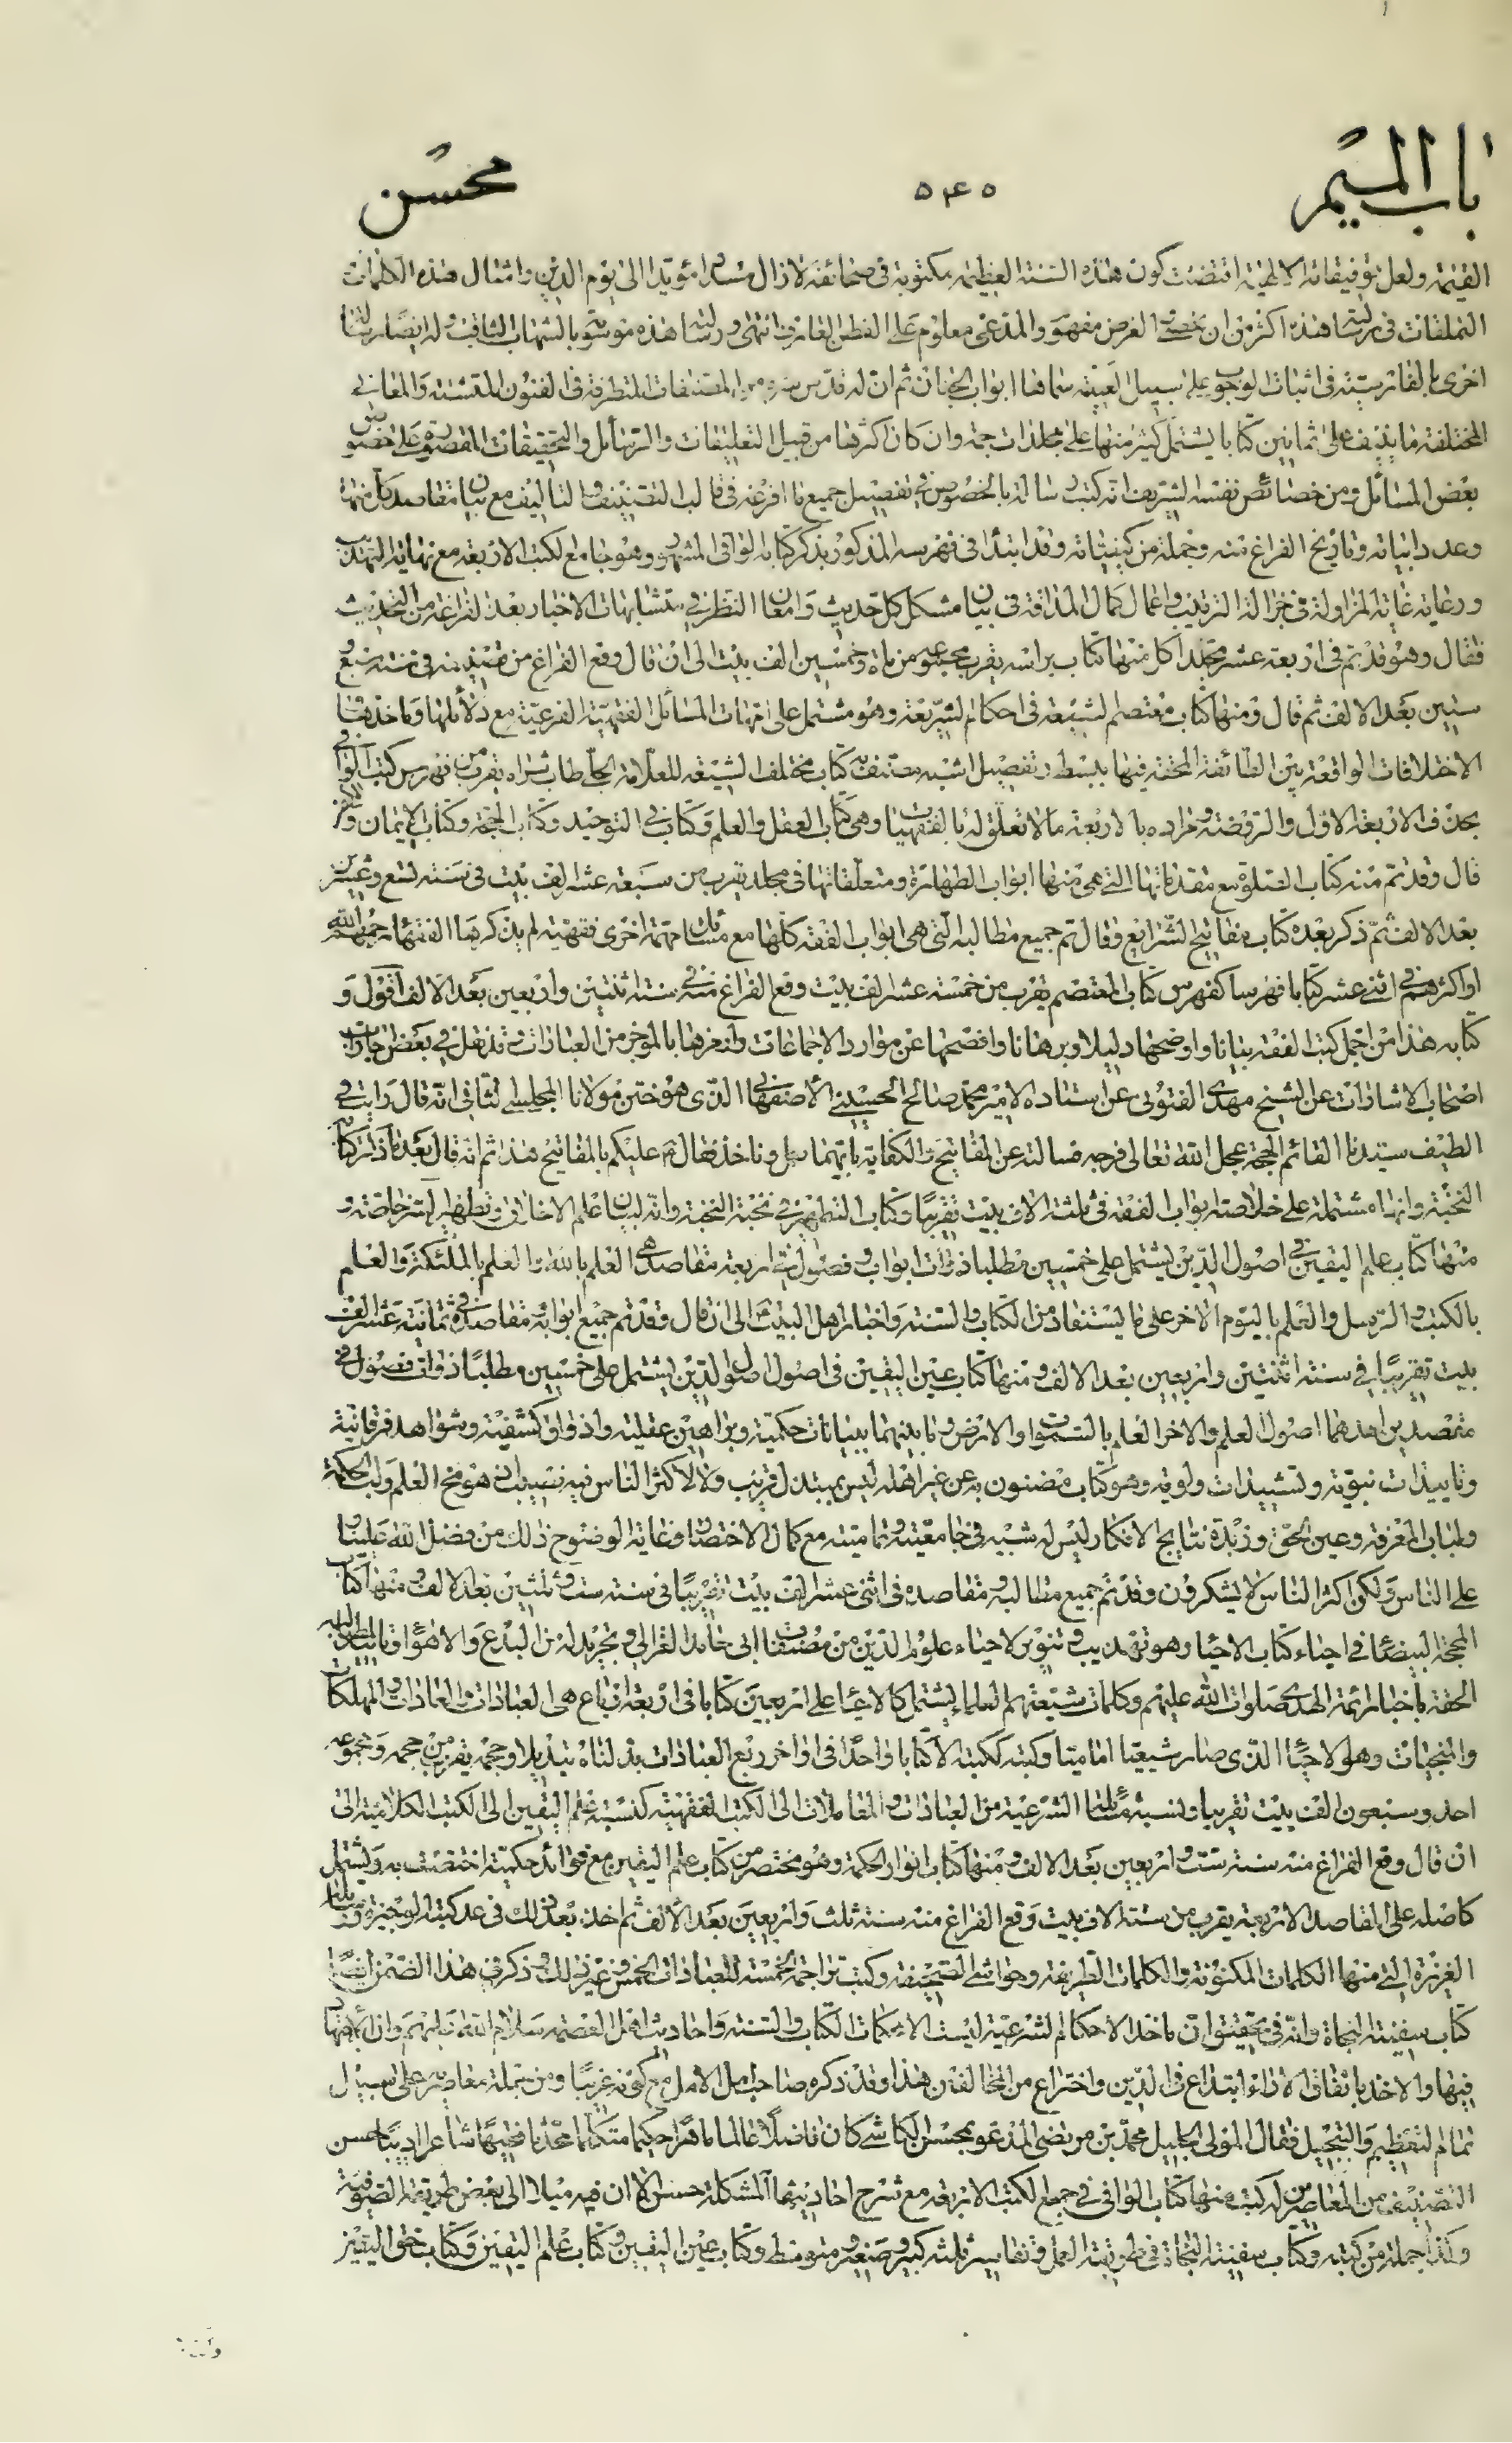 باب الميم ٥٤٥ محسن
القيمة ولعل توفيقاته الالهية اقتضت كون هذه السنة العظيمة مكتوبة في صحائفه لازال مؤيدا الى يوم الدين وامثال هذه الكلمات
التملقات في هذه اكثر من ان الغرض مفهوم والمدعى معلوم على الفطن العارف انتهى هذه موسومة بالشهاب الثاقب وله ايضا رسالة
اخرى بالفارسية في اثبات الوجوب على سبيل العينية سماها ابواب الجنان ثم ان له قدس سره من المصنفات المتطرفة في الفنون المتشتتة والمعاني
المختلفة ما ينيف على ثمانين كتابا يشتمل كثير منها على مجلدات جمة وان كان اكثرها من قبيل التعليقات والرسائل والتحقيقات المقصورة على خصوص
بعض المسائل ومن خصائص نفسه الشريف انه كتب رسالة بالخصوص في تفصيل جميع ما افرغه في قالب التصنيف والتاليف مع بيان مقاصد كل منها
وعدد ابياته وتاريخ الفراغ منه وجملة من كيفياته وقد ابتدا في فهرسه المذكور بذكر كتابه الوافي المشهور وهو جامع لكتب الاربعة مع نهاية التهذيب
ورعاية غاية المزاولة في جزالة الترتيب واعمال كمال المداقة في بيان مشكل كل حديث وامعان النظر في متشابهات الاخبار بعد الفراغة من التحديث
فقال وهو قد تم في اربعة عشر مجلدا كل منها كتاب براسه يقرب مجموعه من مائة وخمسين الف بيت الى ان قال وقع الفراغ من تصنيفه في سنة
ستين بعد الالف ثم قال ومنها كتاب معتصم الشيعة في احكام الشريعة وهو مشتمل على امهات المسائل الفقهية الفرعية مع دلائلها وماخذها
الاختلافات الواقعة بين الطائفة المحقة فيها ببسط وتفصيل اشبه مصنف به كتاب مختلف الشيعة للعلامة الحلي طاب ثراه يقرب من فهرس كتب الوافي
بحذف الاربعة الاول والروضة ومراده بالاربعة مالا تعلق له بالفقهيات وهي كتاب العقل والعلم وكتابي التوحيد وكتاب الحجة وكتاب الايمان والكفر
قال وقد تم منه كتاب الصلوة مع مقدماتها التي هي منها ابواب الطهارة ومتعلقاتها في مجلد يقرب من سبعة عشر الف بيت في سنة تسع وعشرين
بعد الالف ثم ذكر بعده كتاب مفاتيح الشرايع وقال تم جميع مطالبه التي هي ابواب الفقه كلها مع مسائل مهمة اخرى فقهية لم يذكرها الفقهاء رحمهم الله
او اكثرهم في اثني عشر كتابا فهرسا كفهرس كتاب المعتصم يقرب من خمسة عشر الف بيت وقع الفراغ منه في سنة اثنتين واربعين بعد الالف اقول و
كتابه هذا من اجمل كتب الفقه بيانا واوضحها دليلا وبرهانا وافصحها عن موارد الاجماعات وانغرها بالموجز من العبارات في بعض
اصحاب الاشارات عن الشيخ مهدي الفتوني عن استاده الامير محمد صالح الحسيني الاصفهاني الذي هو ختن مولانا المجلسي الثاني انه قال رايت في
الطيف سيدنا القائم الحجة عجل الله تعالى فرجه فسالته عن المفاتيح والكفاية بايهما نعمل وناخذ فقال عليكم بالمفاتيح هذا ثم انه قال بعد ما ذكر كتاب
النخبة وانها مشتملة على خلاصة ابواب الفقه في ثلثة الاف بيت تقريبا وكتاب التطهير في نخبة النخبة وانه لبيان علم الاخلاق وتطهير السر خاصة و
منها كتاب علم اليقين في اصول الدين يشتمل على خمسين مطلبا ذوات ابواب وفصول في اربعة مقاصد هي العلم بالله والعلم بالملئكة والعلم
بالكتب والرسل والعلم باليوم الاخر على ما يستفاد من الكتاب والسنة واخبار اهل البيت الى ان قال وقد تم جميع ابوابه مقاصده في ثمانية عشر الف
بيت تقريبا في سنة اثنتين واربعين بعد الالف ومنها كتاب عين اليقين في اصول اصول الدين يشتمل على خمسين مطلبا ذوات فصول في
مقصدين احدهما اصول العلم والاخر العلم بالسموات والارض وما بينهما ببيانات حكمية وبراهين عقلية واذواق كشفية وشواهد فرقانية
وتاييدات نبوية وتشييدات ولوية وهو كتاب مضنون به عن غير اهله ليس بمبتذل قريب ولا لاكثر الناس فيه نصيب اذ هو مخ العلم ولب الحكمة
ولباب المعرفة وعين الحق وزبدة نتايج الافكار ليس له شبيه في جامعيته وتماميته مع كمال الاختصار وغاية الوضوح ذلك من فضل الله علينا و
على الناس ولكن اكثر الناس لا يشكرون وقد تم جميع مطالبه ومقاصده في اثني عشر الف بيت تقريبا في سنة ست وثلثين بعد الالف ومنها كتاب
المحجة البيضاء في احياء كتاب الاحياء وهو تهذيب وتنوير لاحياء علوم الدين من مصنفات ابي حامد الغزالي وتجريد له من البدع والاهواء
الحقة باخبار ائمة الهدى صلوات الله عليهم وكلمات شيعتهم العلماء يشتمل كالاحياء على اربعين كتابا في اربعة ارباع هي العبادات والعادات والمهلكات
والمنجيات وهو الاحياء الذي صار شيعيا اماميا وكتبه ككتبه الا كتابا واحدا في اواخر ربع العبادات بدلناه تبديلا وحجمه يقرب من حجمه ومجموعه
احد وسبعون الف بيت تقريبا ونسبة مسائله الشرعية من العبادات والمعاملات الى الكتب الفقهية كنسبة علم اليقين الى الكتب الكلامية الى
ان قال وقع الفراغ منه سنة ست واربعين بعد الالف ومنها كتاب انوار الحكمة وهو مختصر من كتاب علم اليقين مع فوائد حكمية اختصت به ويشتمل
كاصله على المقاصد الاربعة يقرب من ستة الاف بيت وقع الفراغ منه سنة ثلث واربعين بعد الالف ثم اخذ بعد ذلك في عد كتبه الوجيزة
الغزيرة التي منها الكلمات المكنونة والكلمات الطريفة وحواشي الصحيفة وكتب تراجمه الخمسة للعبادات الخمس وغير ذلك وذكر في هذا الضمن ايضا
كتاب سفينة النجاة وانه في تحقيق ان ماخذ الاحكام الشرعية ليست الا محكمات الكتاب والسنة واحاديث اهل العصمة سلام الله عليهم وان الاجتهاد
فيها والاخذ باتفاق الاراء ابتداع في الدين واختراع من المخالفين هذا وقد ذكره صاحب امل الامل مع كونه غريبا ومن جملة معاصريه على سبيل
تمام التعظيم والتبجيل فقال المولى الجليل محمد بن مرتضى المدعو بمحسن الكاشي كان فاضلا عالما ماهرا حكيما متكلما محدثا فقيها شاعرا اديبا حسن
التصنيف من المعاصرين له كتب منها كتاب الوافي في جمع الكتب الاربعة مع شرح احاديثها المشكلة حسن الا ان فيه ميلا الى بعض طريقة الصوفية
وكذا جملة من كتبه وكتاب سفينة النجاة في طريقة العمل وتفاسير ثلثة كبير وصغير ومتوسط وكتاب عين اليقين وكتاب علم اليقين وكتاب حق اليقين